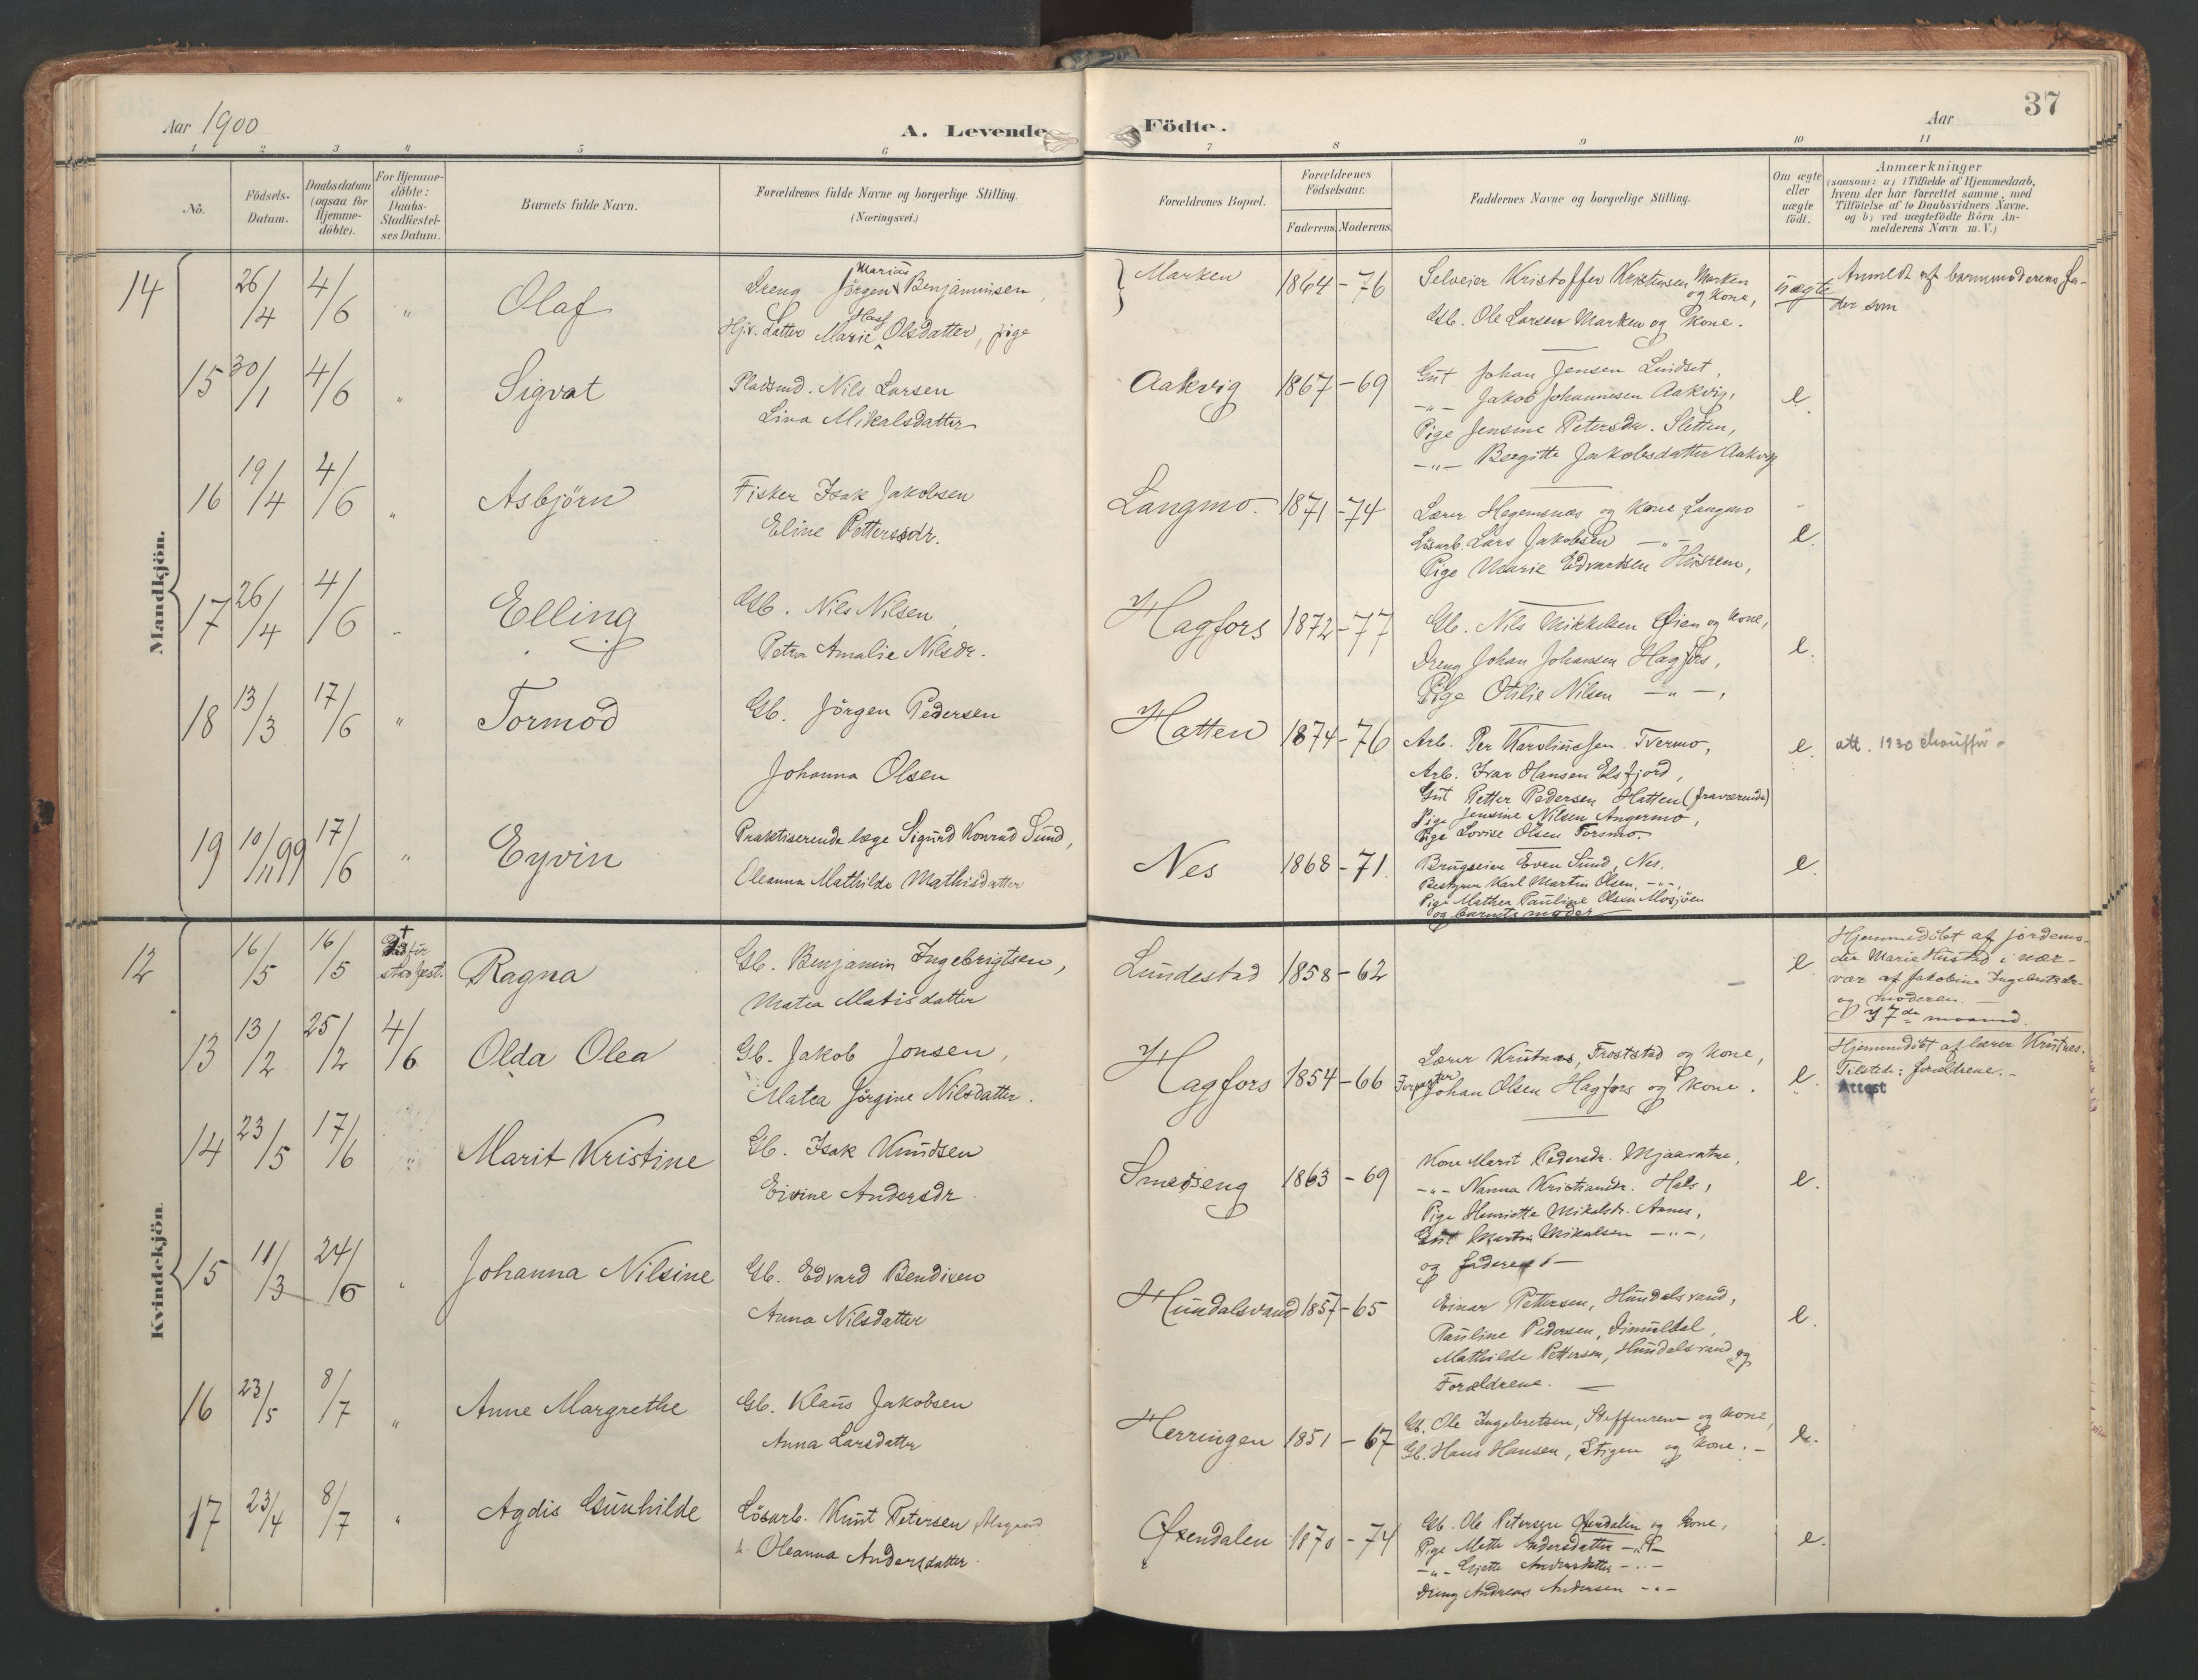 Aar 1900
A. Levende Födte.
Aar
37
1 2 3 4 5 6 7 8 9 10 11
No.
Födsels-Datum.
Daabsdatum (ogsaa for Hjemme-döbte).
For Hjemme-döbte: Daabs-Stadfæstel-ses Datum.
Barnets fulde Navn.
Forældrenes fulde Navne og borgerlige Stilling.
(Næringsvei.)
Forældrenes Bopæl.
Forældrenes Födselsaar.
Faderens. Moderens.
Faddernes Navne og borgerlige Stilling.
Om ægte eller uægte födt.
Anmærkninger
(saasom: a) i Tilfælde af Hjemmedaab, hvem der har forrettet samme, med Tilföielse af to Daabsvidners Navne. og b) ved uægtefödte Börn An-melderens Navn m. V.)
Mandkjön.
14 26/4 4/6 " Olaf
Dreng Jörgen Marius Benjaminsen,
Hjv. Datter Marie Olsdatter, pige
Marken 1864 - 76
Selveier Kristoffer Kristensen Marken og Kone,
Gb. Ole Larsen Marken og Kone.
Uægte
Anmeldt af barnmoderens fa-
der som
15 30/1 4/6 " Sigvat
Pladsmd. Nils Larsen
Lina Mikalsdatter
Aakvig 1867 - 69
Gut Johan Jensen Lindset,
-"- Jakob Johannesen Aakvig,
Pige Jensine Petersdr. Sletten,
-"- Bergitte Jakobsdatter Aakvig
e.
16 19/4 4/6 " Asbjörn
Fisker Isak Jakobsen
Eline Pettersdr.
Langmo. 1871 - 74
Lærer Hegemsnæs og Kone, Langmo
Lösarb. Lars Jakobsen -"-
Pige Marie Edvardsen Husrem,
e.
17 26/4 4/6 " Elling
Gb. Nils Nilsen,
Petra Amalie Nilsdr.
Hagfors 1872 - 77
Gb. Nils Mikkelsen Öien og Kone,
Dreng Johan Johansen Hagfors,
Pige Otilie Nilsen -"-,
e.
18 13/3 17/6 " Tormod
Gb. Jörgen Pedersen
Johanna Olsen
Hatten 1874 - 76
Arb. Per Karolinussen Tvermo,
Arb. Ivar Hansen Elsfjord,
Gut Petter Pedersen Hatten (fraværende)
Pige Jensine Nilsen Angermo,
Pige Lovise Olsen Forsmo.
e.
att. 1930
19 10/11 99 17/6 " Eyvin
Praktiserende læge Sigurd Konrad Sund,
Oleanna Mathilde Mathisdatter
Nes 1868 - 71.
Brugseier Even Sund, Nes.
Bestyrer Karl Martin Olsen, -"-,
Pige Mathea Pauline Olsen Mosjöen
og barnets moder
e.
Kvindekjön.
12 16/5 16/5 † för stadfest. Ragna
Gb. Benjamin Ingebrigtsen,
Matea Matisdatter
Lundestad 1858 - 62
e.
Hjemmedöbt af jordemo-
der Marie Hustad i nær-
vær af Jakobine Ingebretsdr.
og moderen.
I 7de maaned.
13 13/2 25/2 4/6 Olda Olea
Gb. Jakob Jonsen,
Matea Jörgine Nilsdatter.
Hagfors 1854 - 66
Lærer Krutnæs, Froststad og Kone,
Forpagter Johan Olsen Hagfors og Kone.
e.
Hjemmedöbt af lærer Krutnæs.
Tilstede: forældrene.
Attest
14 23/5 17/6 " Marit Kristine
Gb. Isak Knudsen
Eivine Andersdr.
Smedseng 1863 - 69
Kone Marit Pedersdr. Mjaavatne,
-"- Nanna Kristiansdr. Hals,
Pige Henriette Mikalsdr. Aanes,
Gut Martin Mikalsen -"-,
og faderen
e.
15 11/3 24/6 " Johanna Nilsine
Gb. Edvard Bendixen
Anna Nilsdatter
Hundalsvand 1857 - 65
Einar Pettersen, Hundalsvand,
Pauline Pedersen,
Mathilde Pettersen, Hundalsvand og
Forældrene.
e.
16 23/5 8/7 " Anne Margrethe
Gb. Klaus Jakobsen
Anna Larsdatter
Herringen 1851 - 67
Gb. Ole Ingebretsen, Steffenrem og Kone,
Gb. Hans Hansen, Stigen og Kone.
e.
17 23/4 8/7 " Agdis Gunhilde
Lösarb. Knut Petersen
h. Oleanna Andersdatter.
Öxendalen 1870 - 74
Gb. Ole Petersen Öxendalen og Kone,
Pige Mette Andersdatter -"-
-"- Gjette Andersdatter -"-
Dreng Andreas Andersen -"-
e.